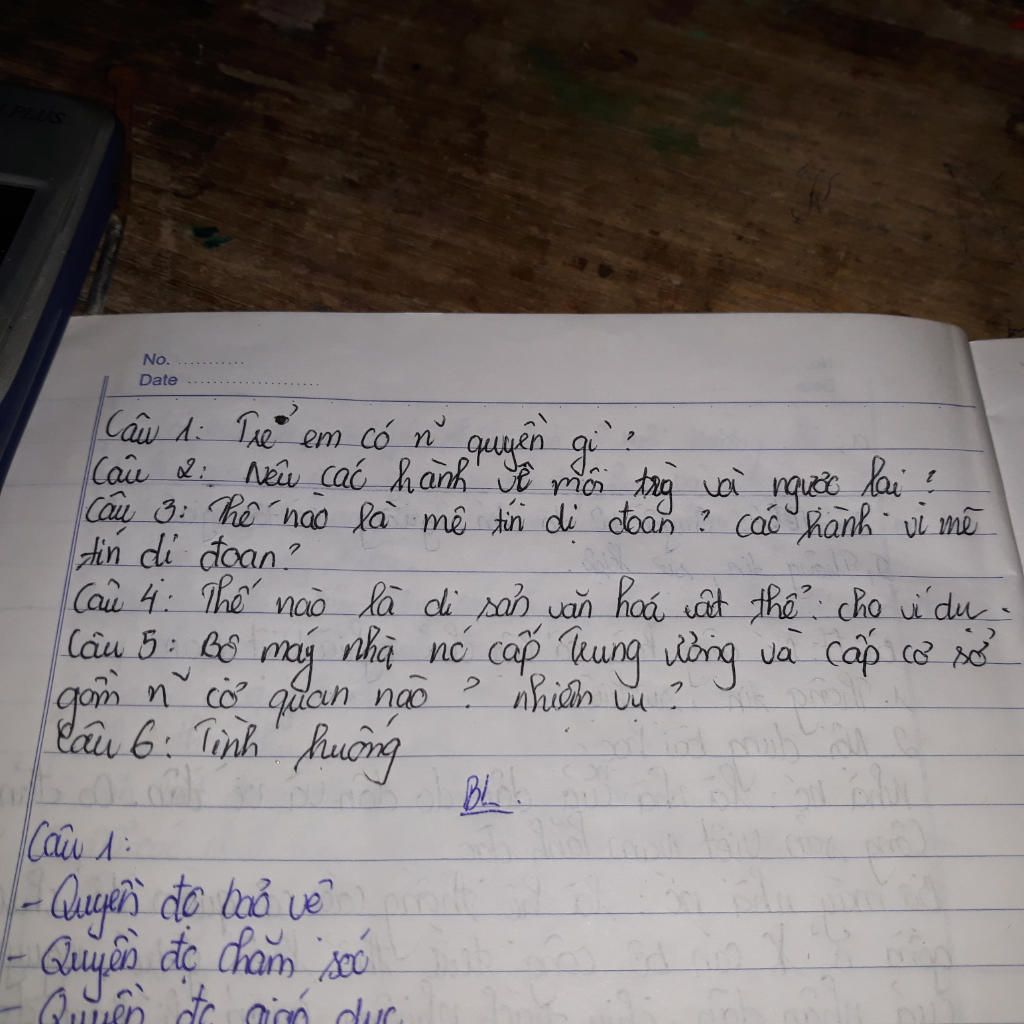 PLUS
No. ...........
Date .....................
Câu 1: Trẻ em có n~ quyền gì?
Câu 2: Nêu các hành về môi trg và ngược lại?
Câu 3: Thế nào là mê tín dị đoan? các hành vi mê
tín dị đoan?
Câu 4: Thế nào là di sản văn hoá vật thể: cho ví dụ.
Câu 5: Bộ máy nhà nc cấp Trung ương và cấp cơ sở
gồm n~ cơ quan nào? nhiệm vụ?
Câu 6: Tình huống
BL.
Câu 1:
- Quyền đc bảo vệ
- Quyền đc chăm sóc
- Quyền đc giáo dục